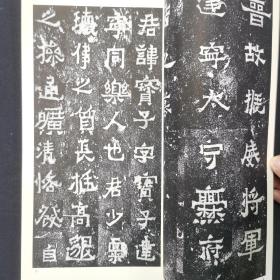 晉故振威將軍
建寧太守爨府
君諱寶子字寶子建
寧同樂人也君少稟
瓌偉之質長挺高邈
之操通曠清恪發自